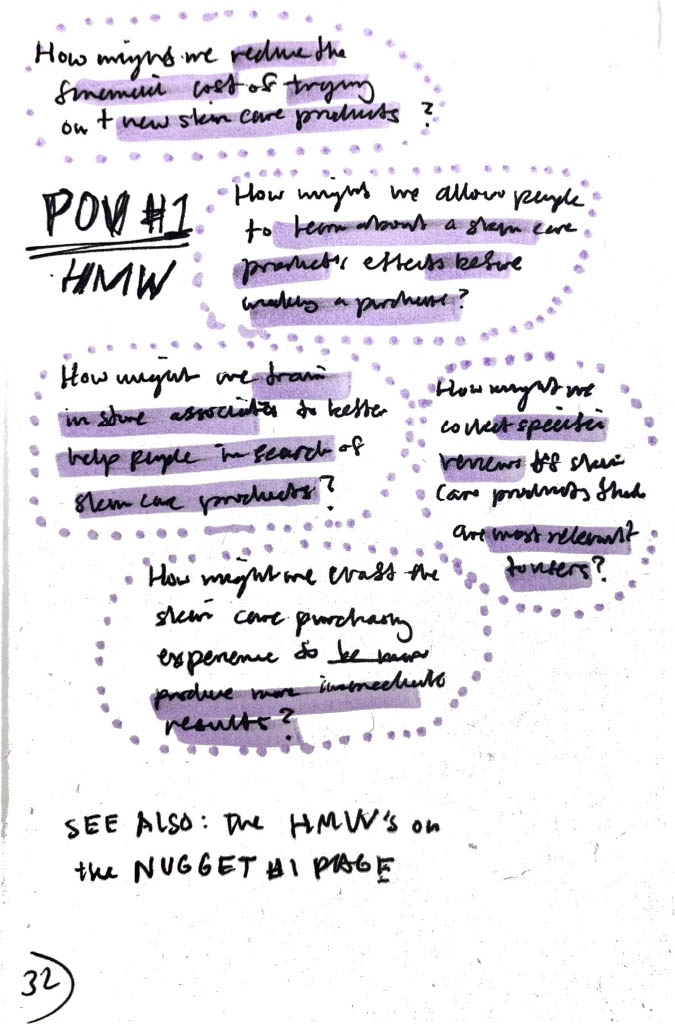 How might we reduce the
financial cost of trying
on + new skin care products ?
POV #1
HMW
How might we allow people
to learn about a skin care
product's effects before
making a purchase?
How might we train
in store associates to better
help people in search of
skin care products?
How might we
collect specific
reviews of skin
care products that
are most relevant
to users?
How might we craft the
skin care purchasing
experience to be more
produce more immediate
results?
SEE ALSO: the HMW's on
the NUGGET #1 PAGE
32